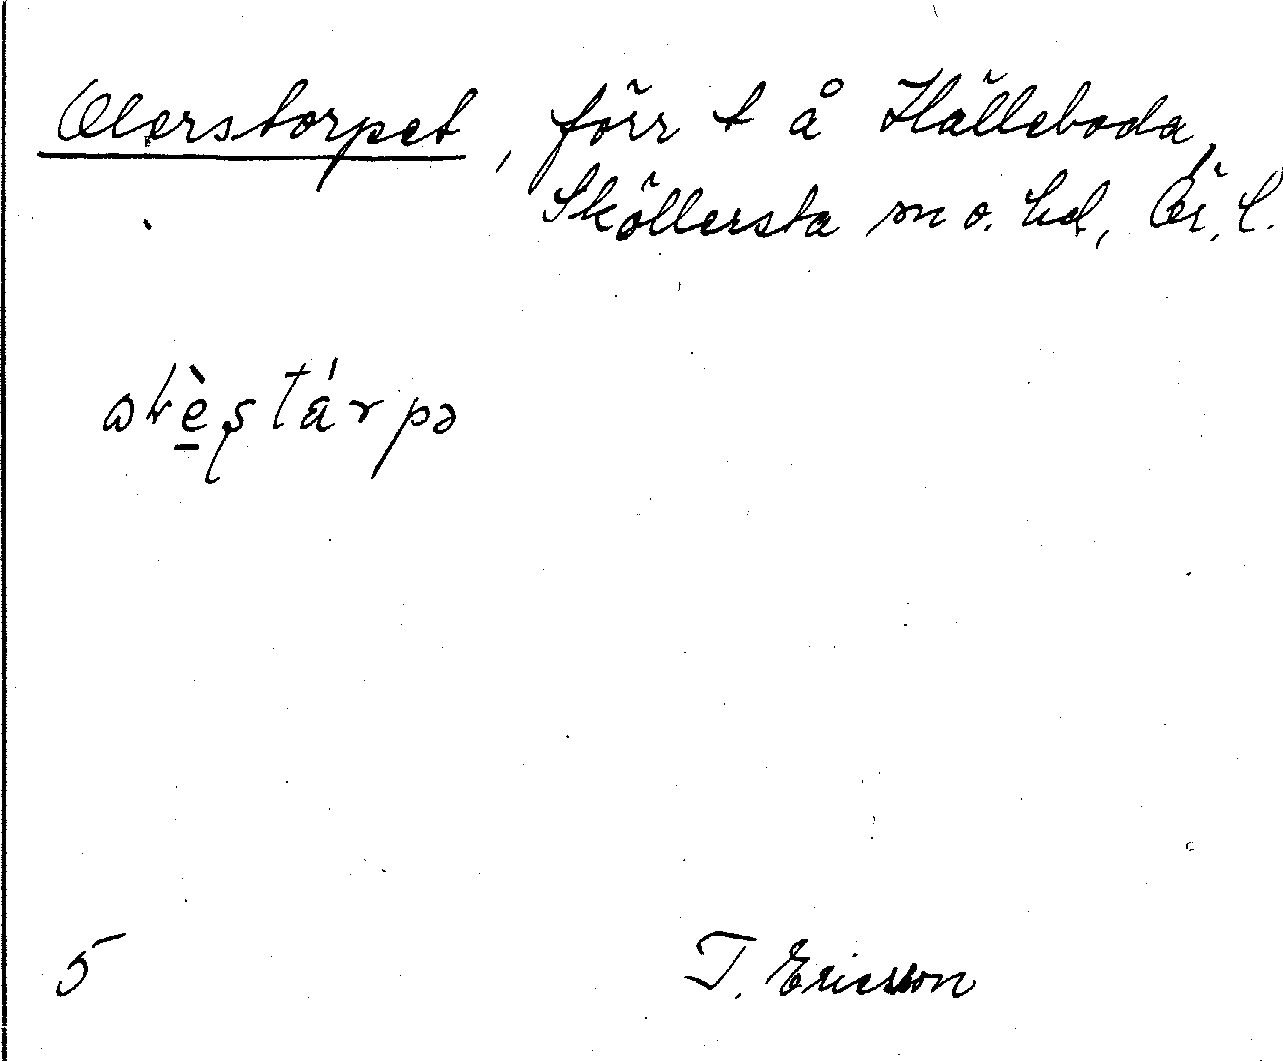 Olerstorpet, förr t å Hälleboda,
Sköllersta sn o. hd, Ör. l.
5
T. Ericsson